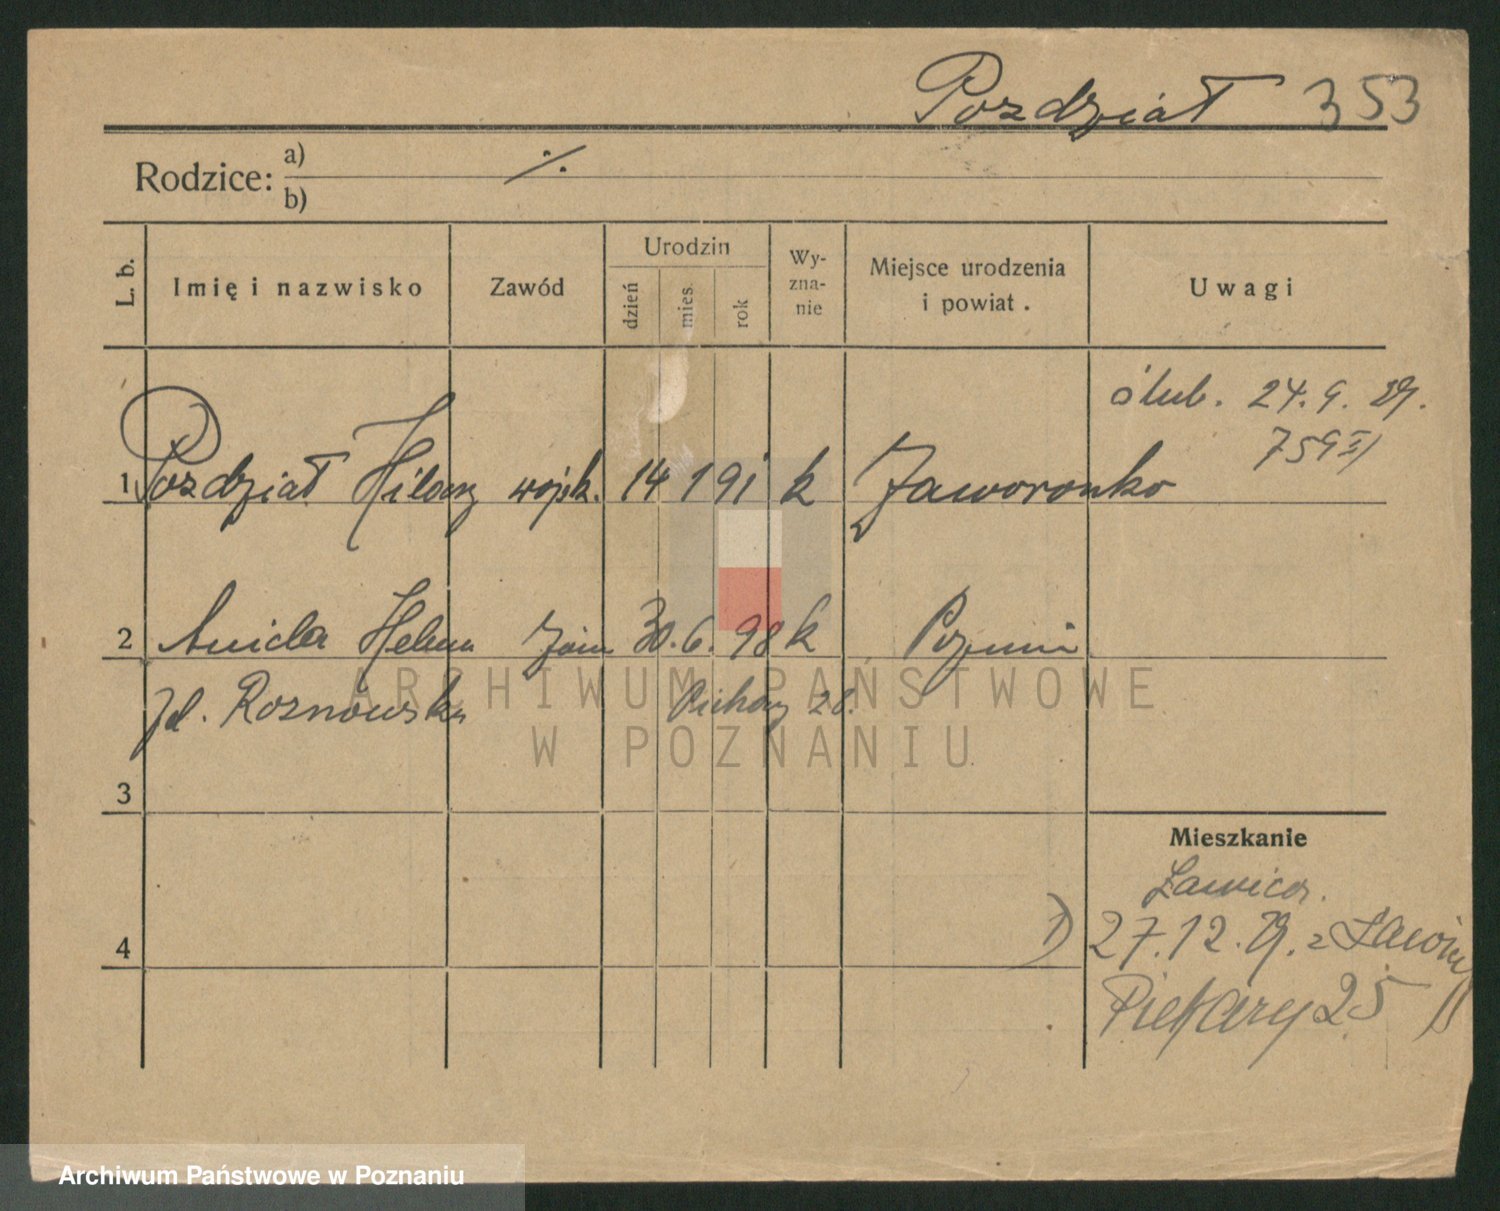 Pozdział 353
Rodzice: a) ./.
b)
L. b. Imię i nazwisko Zawód Urodzin dzień mies. rok Wy-zna-nie Miejsce urodzenia i powiat. Uwagi
ślub. 24. 9. 29.
759 II
1 Pozdział Hilary wojsk. 14 1 91 k Jaworonko
2 Aniela Helena 30. 6. 98 k
zd. Roznowska 28.
3
4
Mieszkanie
Ławica.
1) 27. 12. 29. z Ławicy
Piekary 25
ARCHIWUM PAŃSTWOWE
W POZNANIU
Archiwum Państwowe w Poznaniu